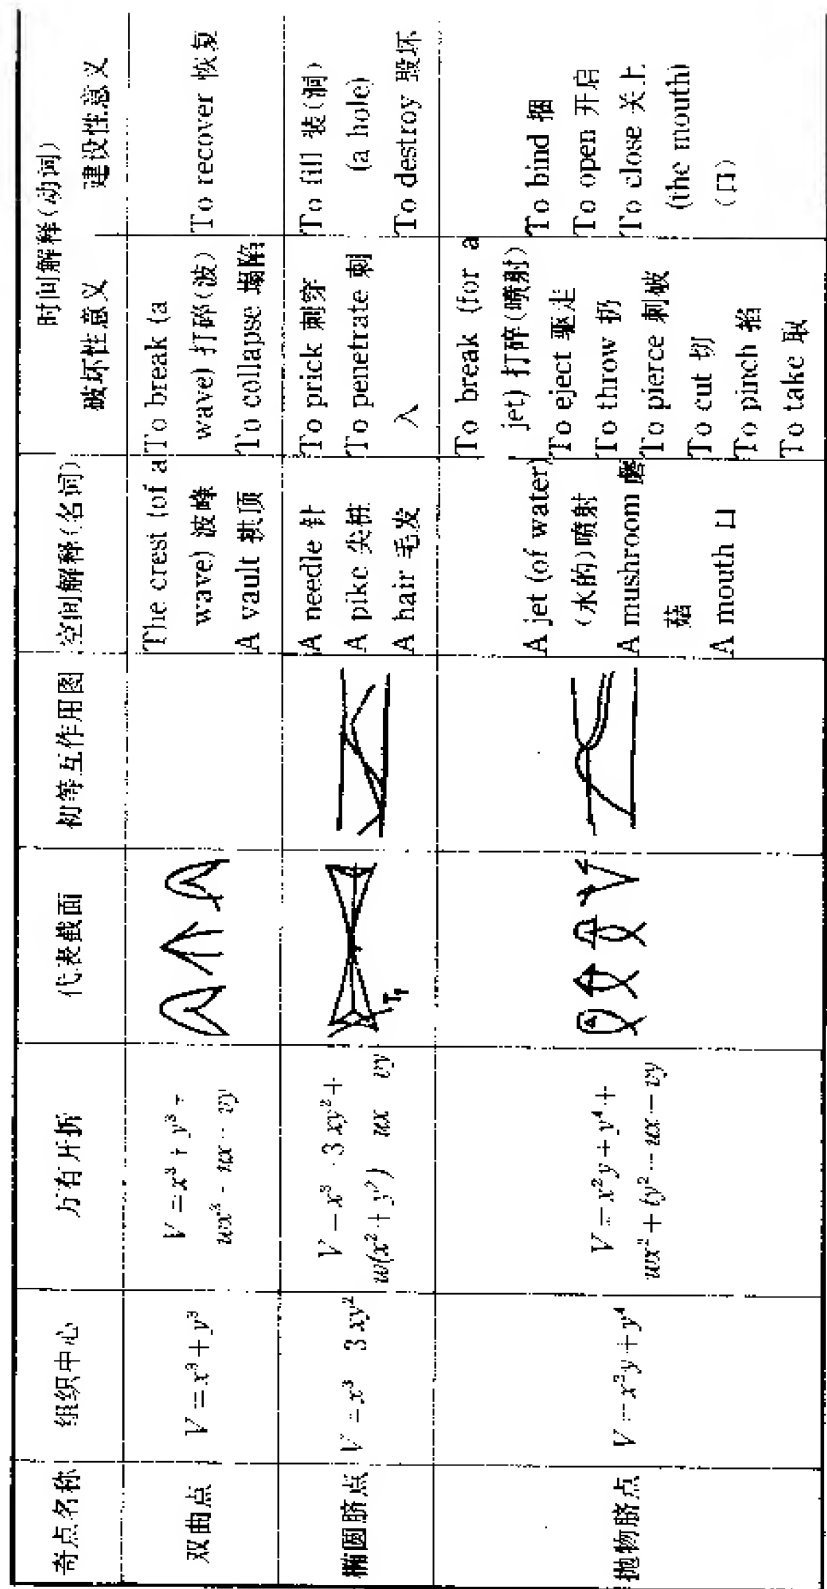 奇点名称
组织中心
万有开折
代表截面
初等互作用图
空间解释(名词)
时间解释(动词)
破坏性意义
建设性意义
双曲点
V = x³ + y³
V = x³ + y³ +
wx² - ux - vy
The crest (of a
wave) 波峰
A vault 拱顶
To break (a
wave) 打碎(波)
To collapse 塌陷
To recover 恢复
椭圆脐点
V = x³ 3xy²
V - x³ 3xy² +
w(x² + y²) ux vy
T₁
A needle 针
A pike 尖桩
A hair 毛发
To prick 刺穿
To penetrate 刺
入
To fill 装(洞)
(a hole)
To destroy 毁坏
抛物脐点
V = x²y + y⁴
V = x²y + y⁴ +
wx² + ty² - ux - vy
A jet (of water)
(水的)喷射
A mushroom 蘑
菇
A mouth 口
To break (for a
jet) 打碎(喷射)
To eject 驱走
To throw 扔
To pierce 刺破
To cut 切
To pinch 掐
To take 取
To bind 捆
To open 开启
To close 关上
(the mouth)
(口)